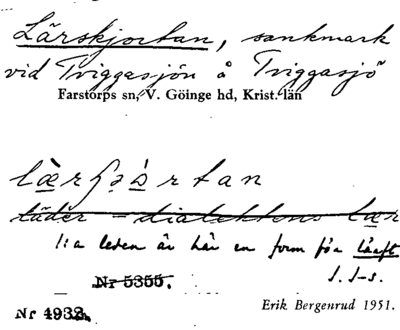 Lärskjortan, sankmark
vid Tviggasjön å Tviggasjö
Farstorps sn, V. Göinge hd, Krist. län
læ̀rʃɔ̀rtan
läder – dialektens lær
1:a leden är här en form för
J. S-s.
Nr 5355.
Nr 4932.
Erik Bergenrud 1951.